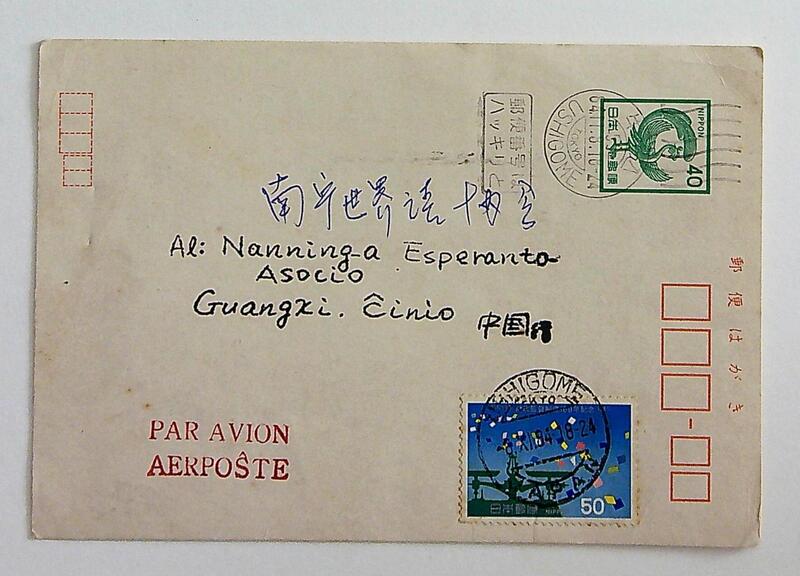 郵便番号は
ハッキリと
USHIGOME
TOKYO
NIPPON
日本郵便
40
南宁世界語协会
Al: Nanning-a Esperanto
Asocio
Guangxi. Ĉinio 中国
郵便はがき
PAR AVION
AERPOŜTE
USHIGOME
TOKYO
JAPAN
日本郵便 NIPPON
50